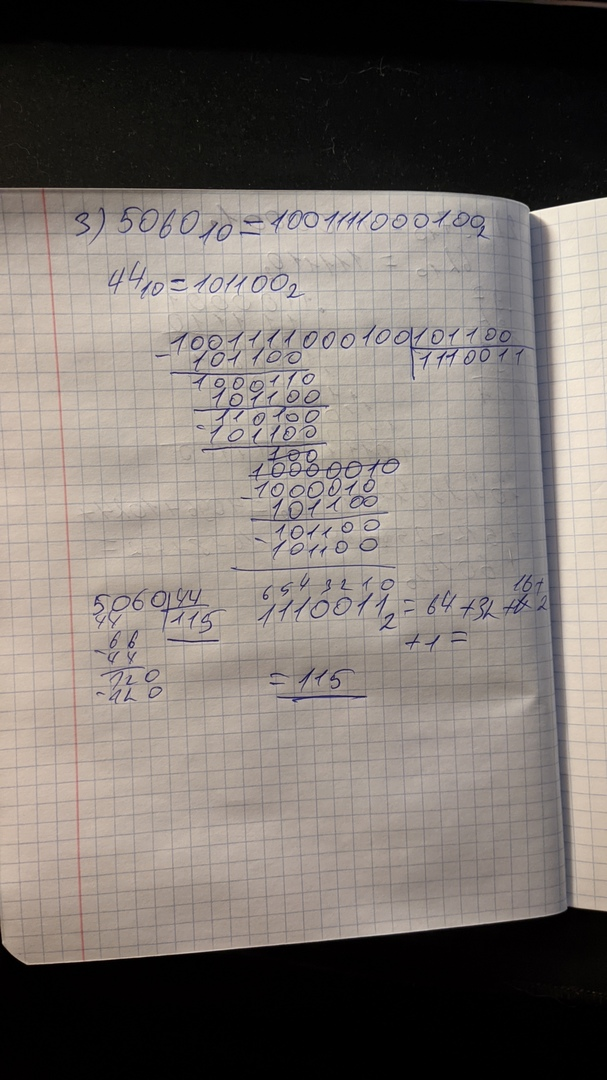 3) 5060₁₀ = 1001111000100₂
44₁₀ = 101100₂
1001111000100 101100
- 101100 1110011
1000110
101100
110100
- 101100
100
10000010
- 1000010
101100
- 101100
101100
5060 44
44 115
66
- 44
220
- 220
6 5 4 3 2 1 0
1110011₂ = 64 + 32 + 16 + 2
+ 1 =
= 115